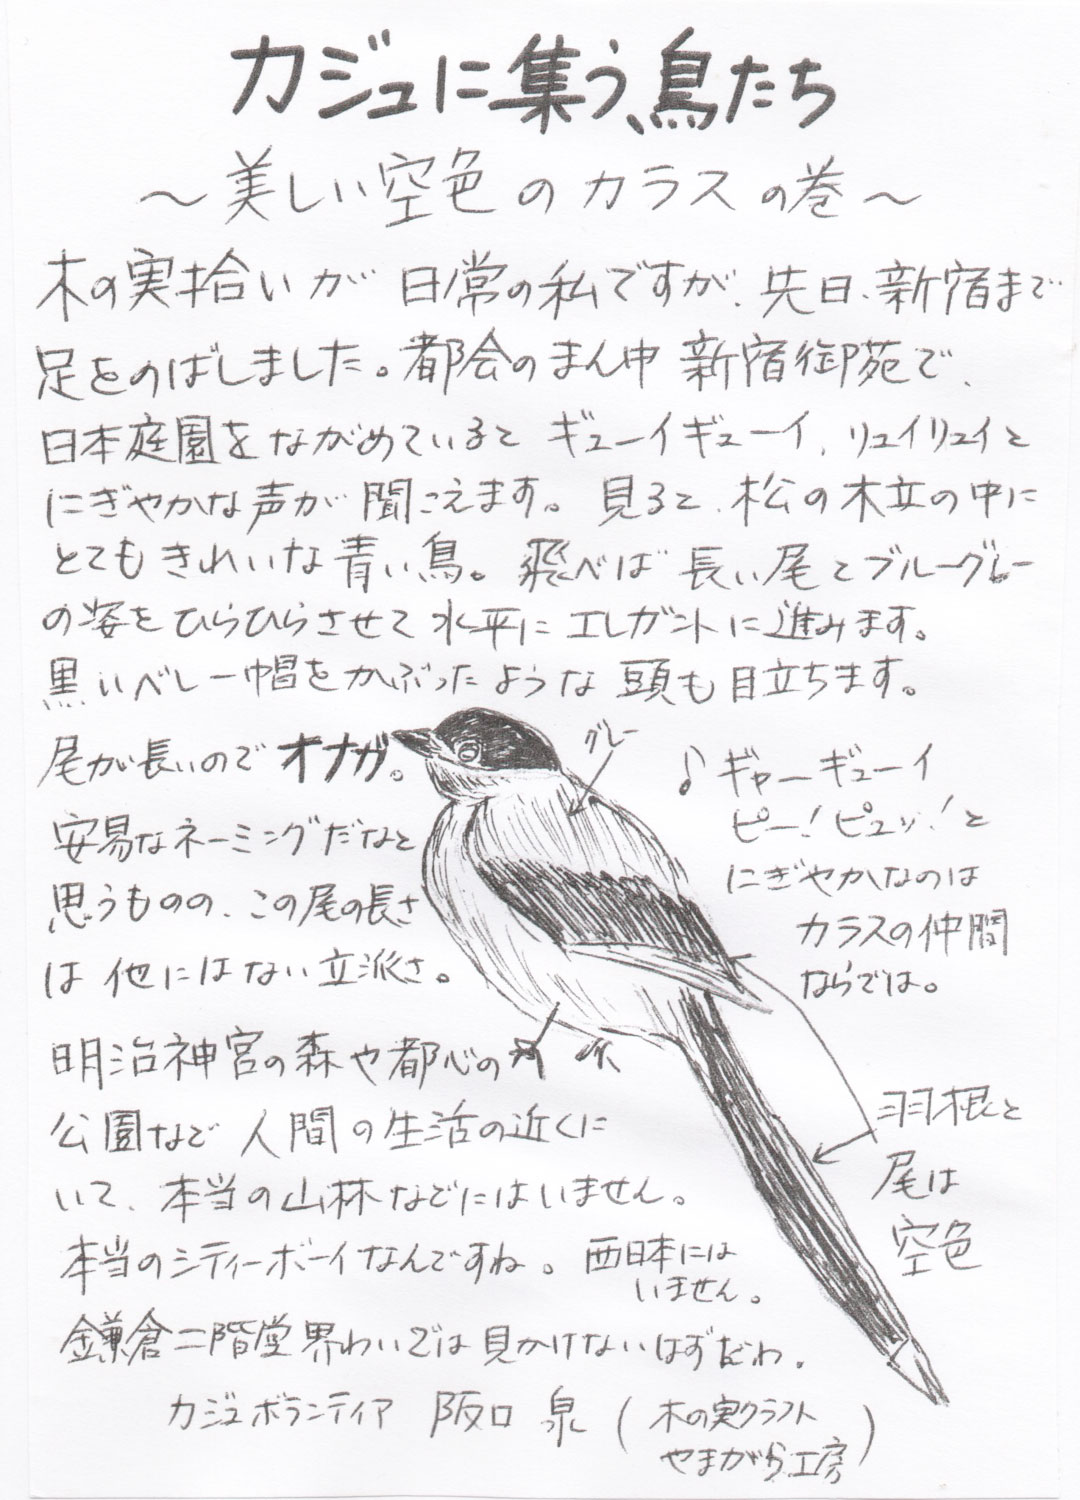 カジュに集う、鳥たち
～美しい空色のカラスの巻～
木の実拾いが日常の私ですが、先日、新宿まで
足をのばしました。都会のまん中 新宿御苑で、
日本庭園をながめていると ギューイギューイ、リュイリュイと
にぎやかな声が聞こえます。見ると、松の木立の中に
とてもきれいな青い鳥。飛べば 長い尾とブルーグレー
の姿をひらひらさせて 水平にエレガントに進みます。
黒いベレー帽をかぶったような 頭も目立ちます。
グレー
尾が長いので オナガ。
安易なネーミングだなと
思うものの、この尾の長さ
は 他にはない立派さ。
♪ギャーギューイ
ピー！ピュッ！と
にぎやかなのは
カラスの仲間
ならでは。
明治神宮の森や都心の
公園など 人間の生活の近くに
いて、本当の山林などにはいません。
本当のシティーボーイなんですね。
西日本には
いません。
羽根と
尾は
空色
鎌倉二階堂界わいでは 見かけないはずだわ。
カジュボランティア 阪口 泉（木の実クラフト
やまがら工房）